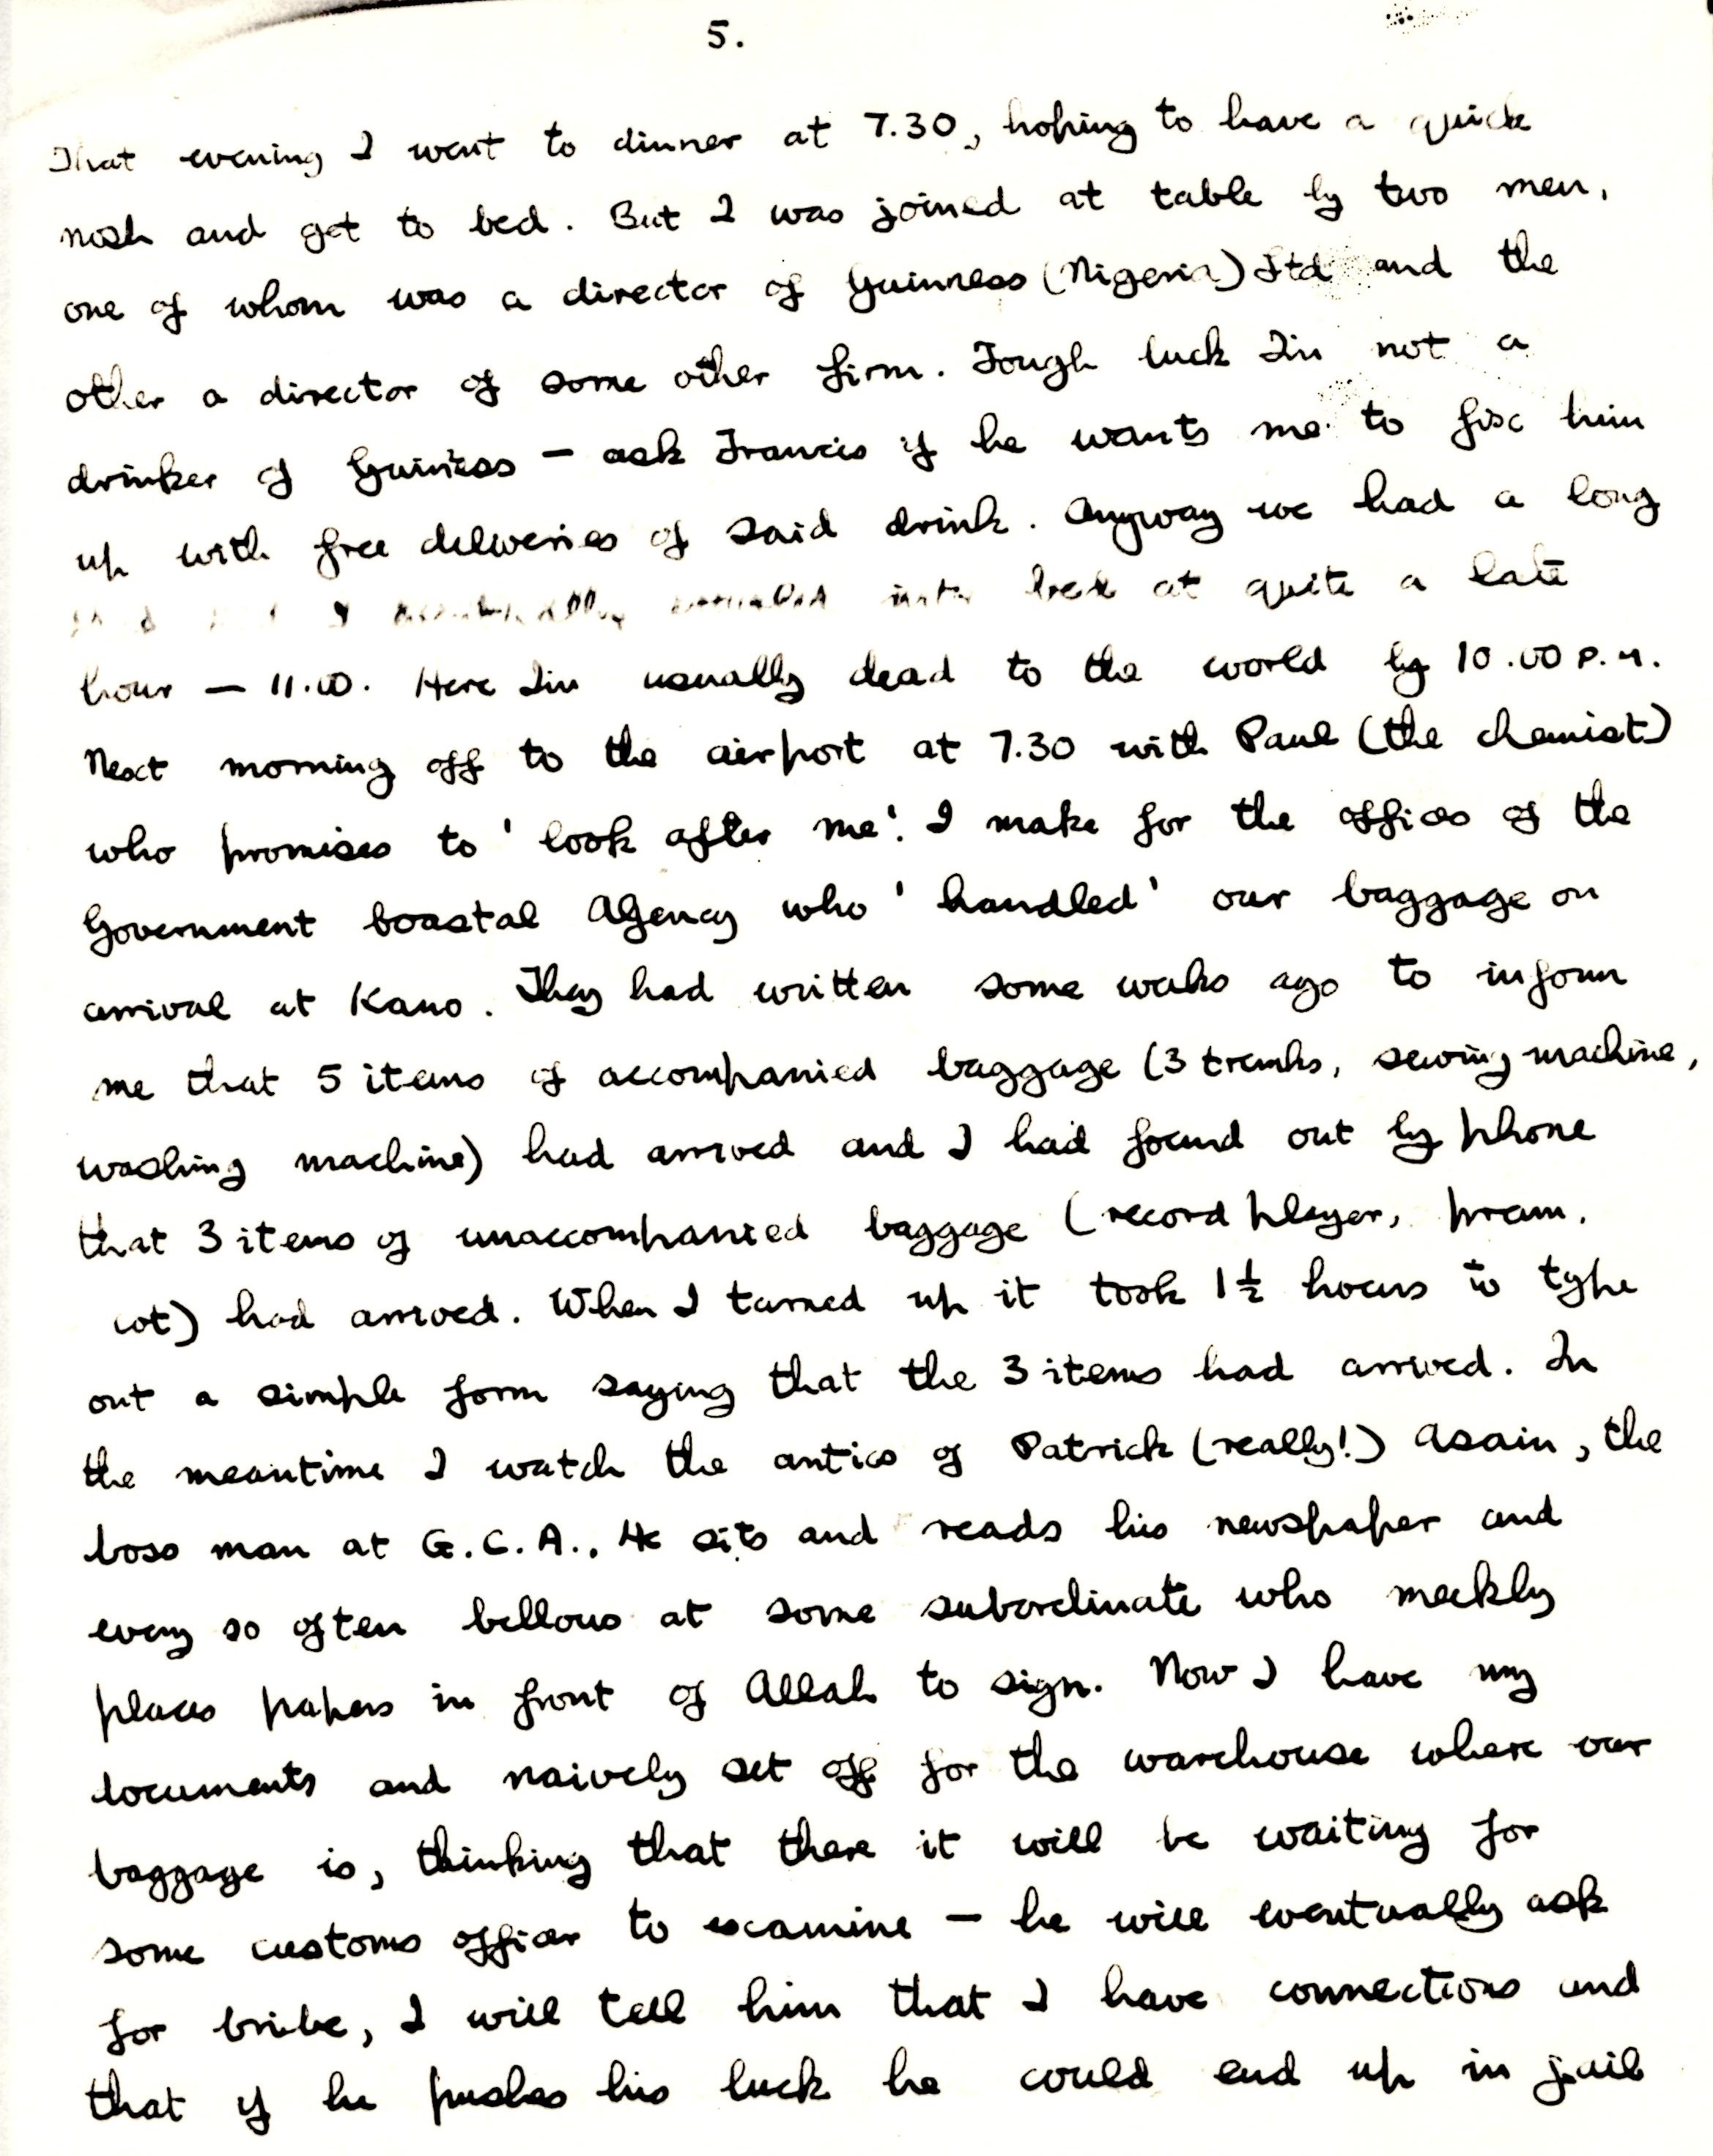 5.
That evening I went to dinner at 7.30, hoping to have a quick
nosh and get to bed. But I was joined at table by two men,
one of whom was a director of Guinness (Nigeria) Ltd and the
other a director of some other firm. Tough luck I'm not a
drinker of Guiness – ask Francis if he wants me to fix him
up with free deliveries of said drink. Anyway we had a long
I eventually into bed at quite a late
hour – 11.00. Here I'm usually dead to the world by 10.00 P.M.
Next morning off to the airport at 7.30 with Paul (the chemist)
who promises to 'look after me'. I make for the offices of the
Government Coastal Agency who 'handled' our baggage on
arrival at Kano. They had written some weeks ago to inform
me that 5 items of accompanied baggage (3 trunks, sewing machine,
washing machine) had arrived and I had found out by phone
that 3 items of unaccompanied baggage (record player, pram,
cot) had arrived. When I turned up it took 1½ hours to type
out a simple form saying that the 3 items had arrived. In
the meantime I watch the antics of Patrick (really!) Asain, the
boss man at G.C.A.. He sits and reads his newspaper and
every so often bellows at some subordinate who meekly
places papers in front of Allah to sign. Now I have my
documents and naively set off for the warehouse where our
baggage is, thinking that there it will be waiting for
some customs officer to examine – he will eventually ask
for bribe, I will tell him that I have connections and
that if he pushes his luck he could end up in jail